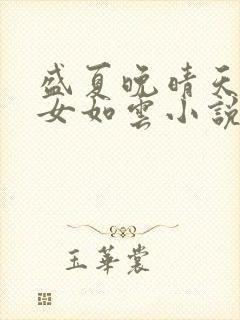 盛夏晚晴天
女如雲小說
玉華裳